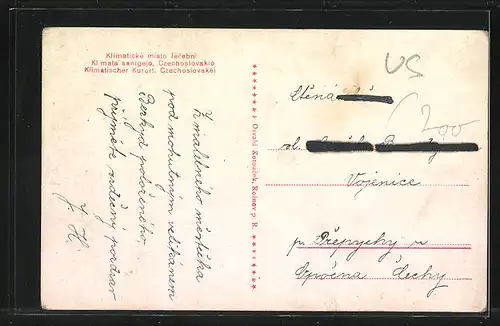 Klimatické místo léčebni
Klimata sanigejo, Czechoslovakio
Klimatischer Kurort, Czechoslovakei
Z malebného městečka
pod mohutným velikánem
položeného,
přijměte srdečný pozdrav
J. H.
Osvald Kotouček, Rožnov p. R.
US
200
Ctěná
sl.
Vojenice
pr. Přepychy u
Opočna Čechy